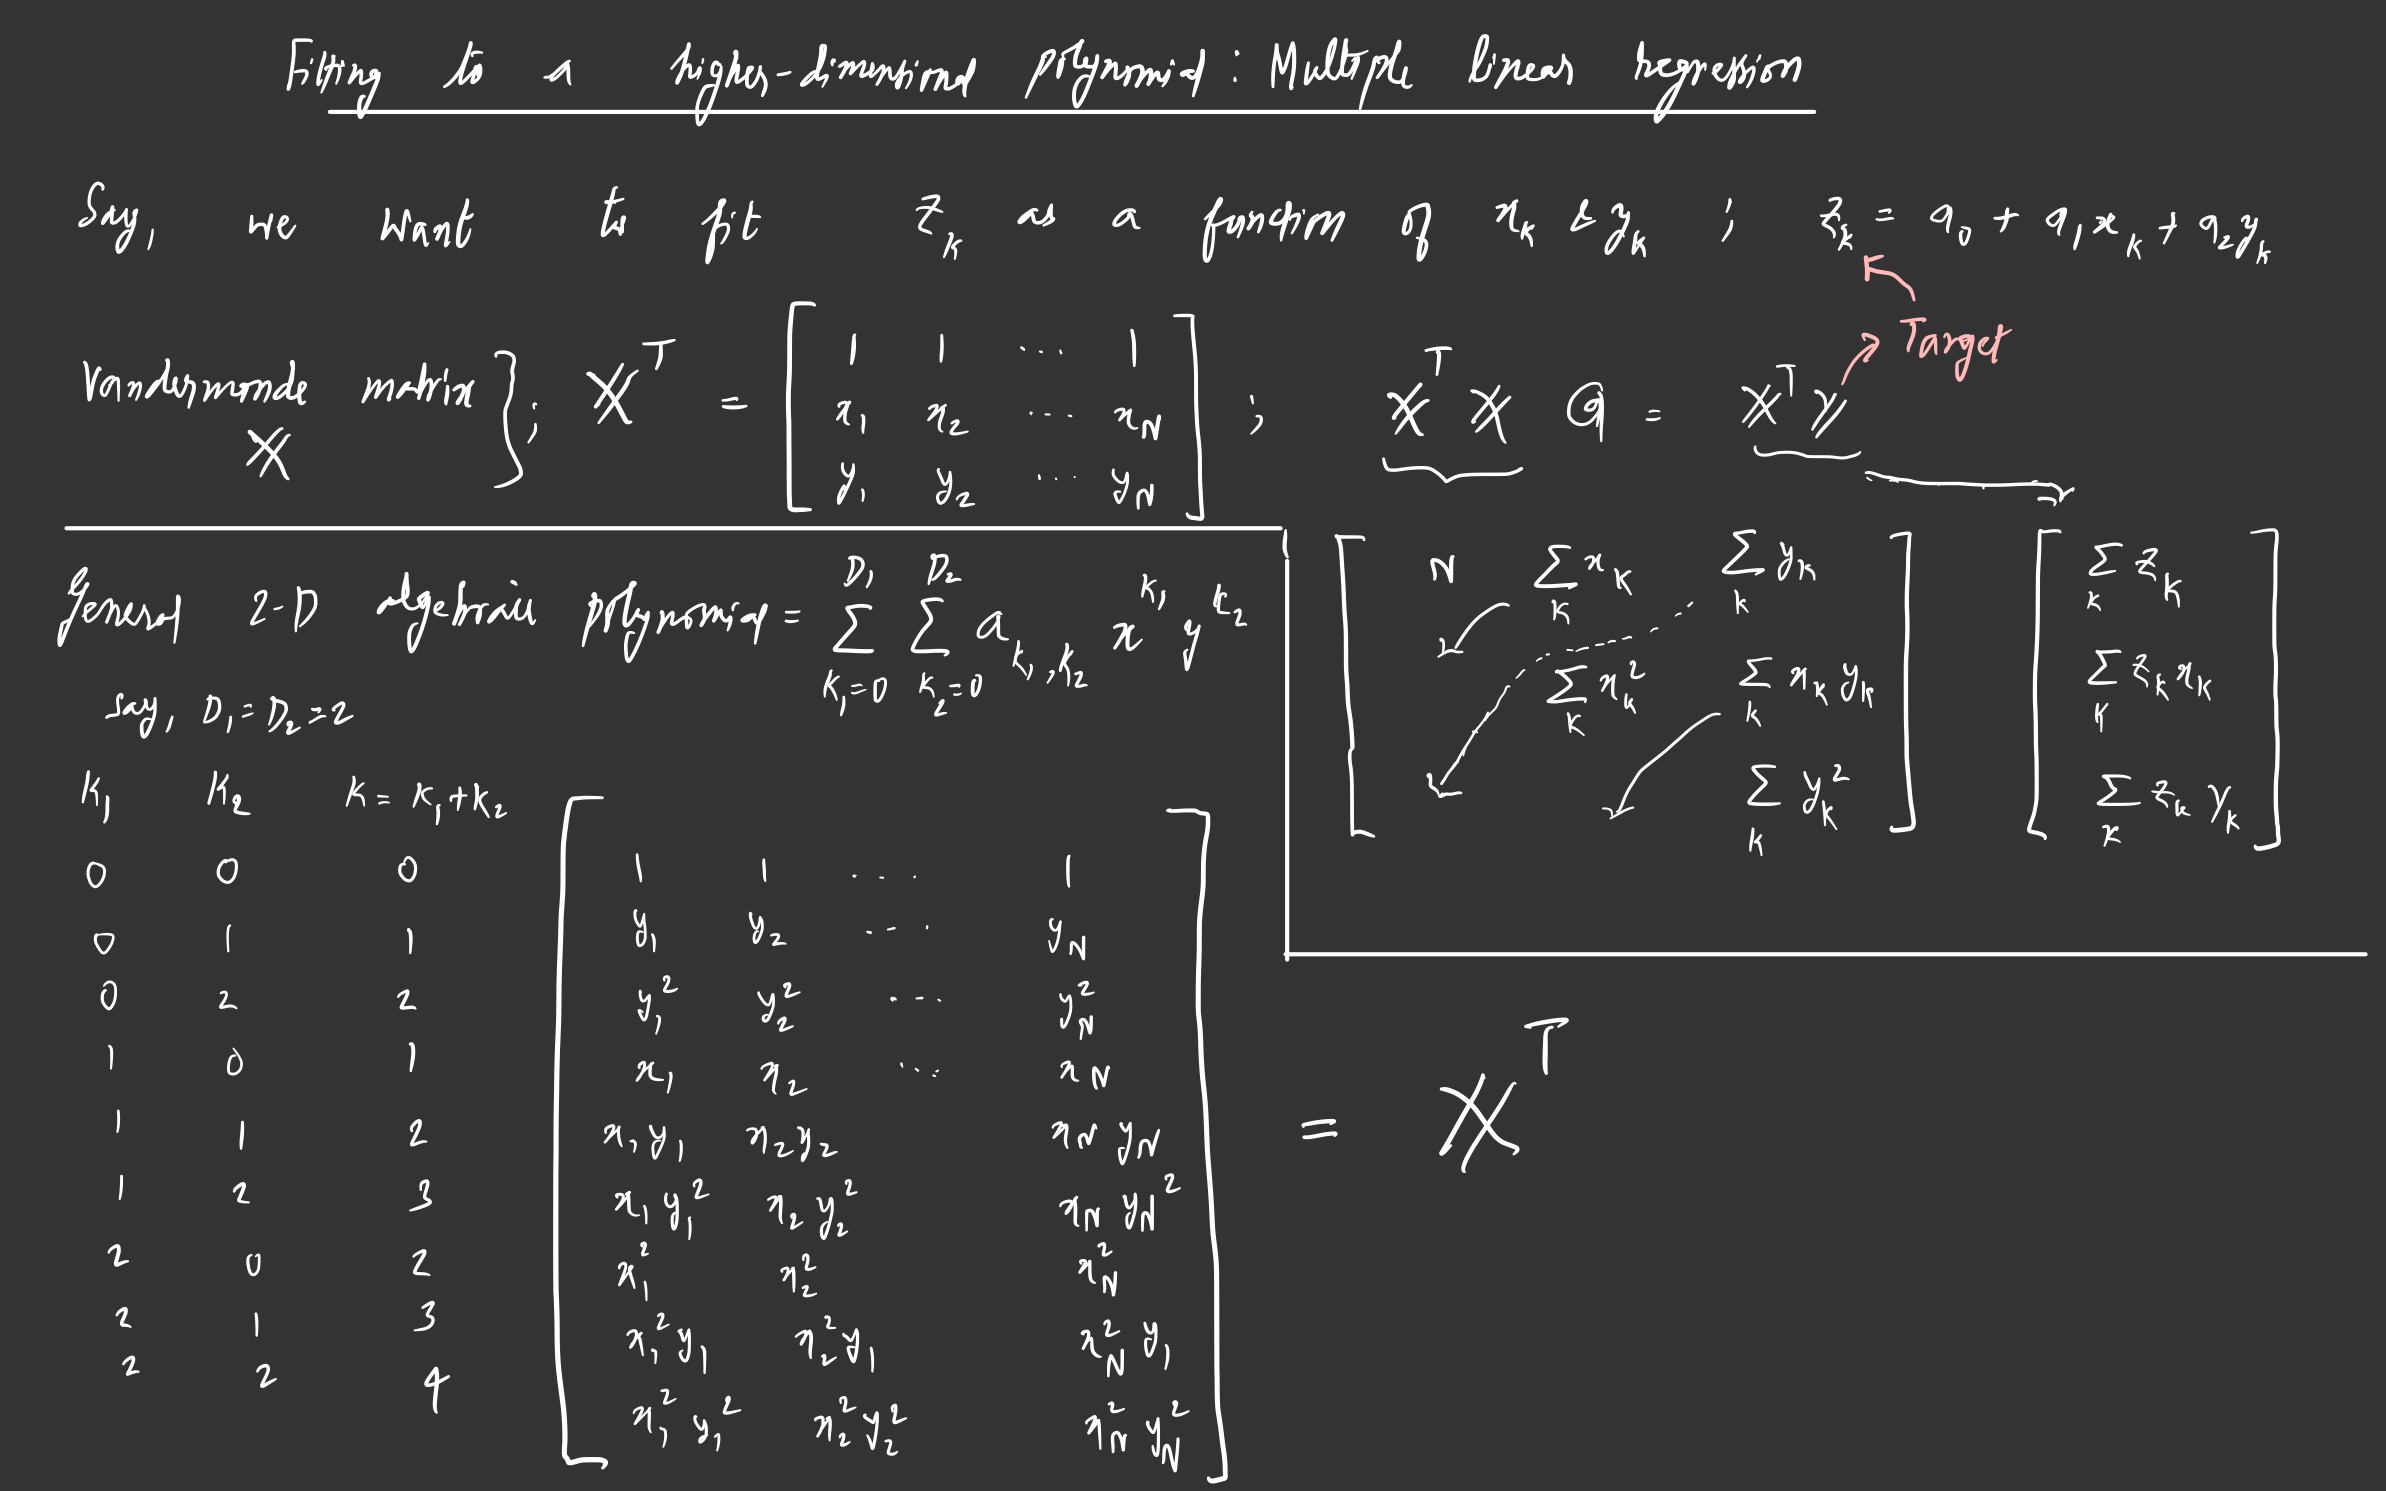 Fitting to a higher-dimensional polynomial : Multiple linear regression
Say, we want to fit z_k as a function of x_k & y_k ; z_k = a_0 + a_1 x_k + a_2 y_k
Target
Vandermonde matrix X } ; X^T = [ 1 1 ... 1
x_1 x_2 ... x_N
y_1 y_2 ... y_N ] ; X^T X a = X^T y
[ N ∑_k x_k ∑_k y_k
∑_k x_k^2 ∑_k x_k y_k
∑_k y_k^2 ]
[ ∑_k z_k
∑_k z_k x_k
∑_k z_k y_k ]
General 2-D algebraic polynomial = ∑_{k_1=0}^{D_1} ∑_{k_2=0}^{D_2} a_{k_1,k_2} x^{k_1} y^{k_2}
say, D_1 = D_2 = 2
k_1 k_2 k = k_1+k_2
0 0 0
0 1 1
0 2 2
1 0 1
1 1 2
1 2 3
2 0 2
2 1 3
2 2 4
[ 1 1 ... 1
y_1 y_2 ... y_N
y_1^2 y_2^2 ... y_N^2
x_1 x_2 ... x_N
x_1 y_1 x_2 y_2 x_N y_N
x_1 y_1^2 x_2 y_2^2 x_N y_N^2
x_1^2 x_2^2 x_N^2
x_1^2 y_1 x_2^2 y_1 x_N^2 y_1
x_1^2 y_1^2 x_2^2 y_2^2 x_N^2 y_N^2 ]
= X^T